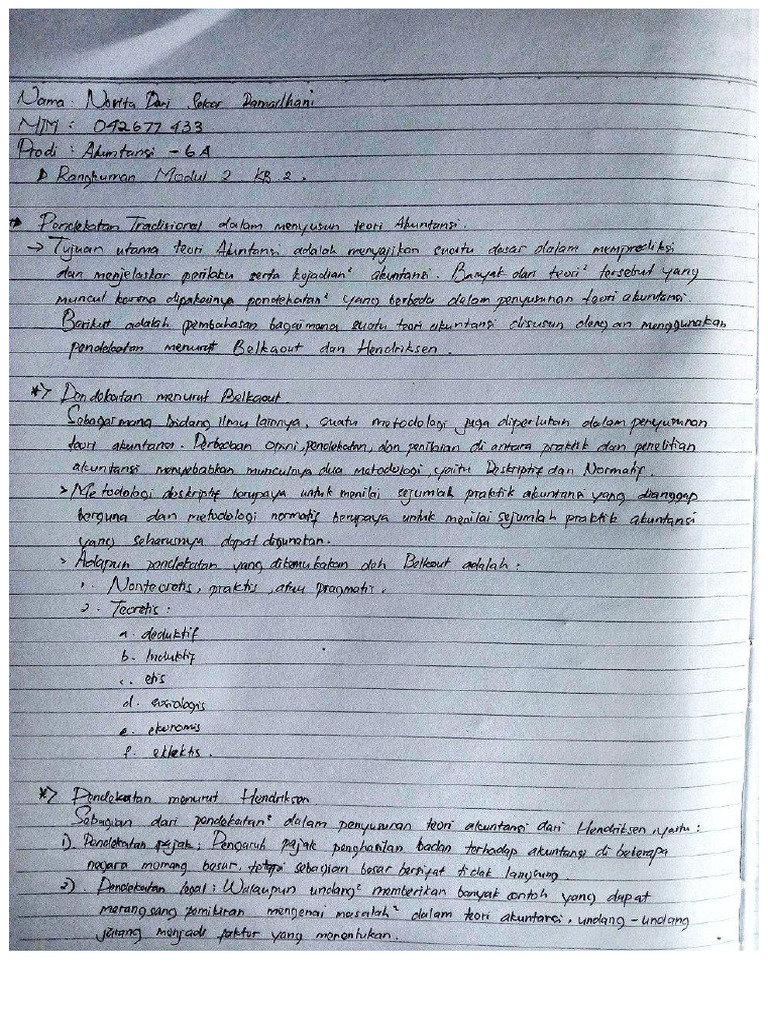 Nama : Novita Dari Sekar Ramadhani
NIM : 042677433
Prodi : Akuntansi - 6A
Rangkuman Modul 2 KB 2.
Pendekatan Tradisional dalam menyusun teori Akuntansi.
→ Tujuan utama teori Akuntansi adalah menyajikan suatu dasar dalam memprediksi
dan menjelaskan perilaku serta kejadian² akuntansi. Banyak dari teori² tersebut yang
muncul karena dipakainya pendekatan² yang berbeda dalam penyusunan teori akuntansi.
Berikut adalah pembahasan bagaimana suatu teori akuntansi disusun dengan menggunakan
pendekatan menurut Belkaout dan Hendriksen.
*> Pendekatan menurut Belkaout.
Sebagaimana bidang ilmu lainnya, suatu metodologi juga diperlukan dalam penyusunan
teori akuntansi. Perbedaan opini, pendekatan, dan penilaian di antara praktik dan penelitian
akuntansi menyebabkan munculnya dua metodologi, yaitu Deskriptif dan Normatif.
> Metodologi deskriptif berupaya untuk menilai sejumlah praktik akuntansi yang dianggap
berguna dan metodologi normatif berupaya untuk menilai sejumlah praktik akuntansi
yang seharusnya dapat digunakan.
> Adapun pendekatan yang dikemukakan oleh Belkaout adalah :
1. Nonteoretis, praktis, atau pragmatis.
2. Teoretis :
a. deduktif
b. Induktif
c. etis
d. sosiologis
e. ekonomis
f. eklektis.
*> Pendekatan menurut Hendriksen
Sebagian dari pendekatan² dalam penyusunan teori akuntansi dari Hendriksen, yaitu :
1). Pendekatan pajak; Pengaruh pajak penghasilan badan terhadap akuntansi di beberapa
negara memang besar, tetapi sebagian besar bersifat tidak langsung.
2). Pendekatan legal : Walaupun undang² memberikan banyak contoh yang dapat
merangsang pemikiran mengenai masalah² dalam teori akuntansi, undang-undang
jarang menjadi faktor yang menentukan.